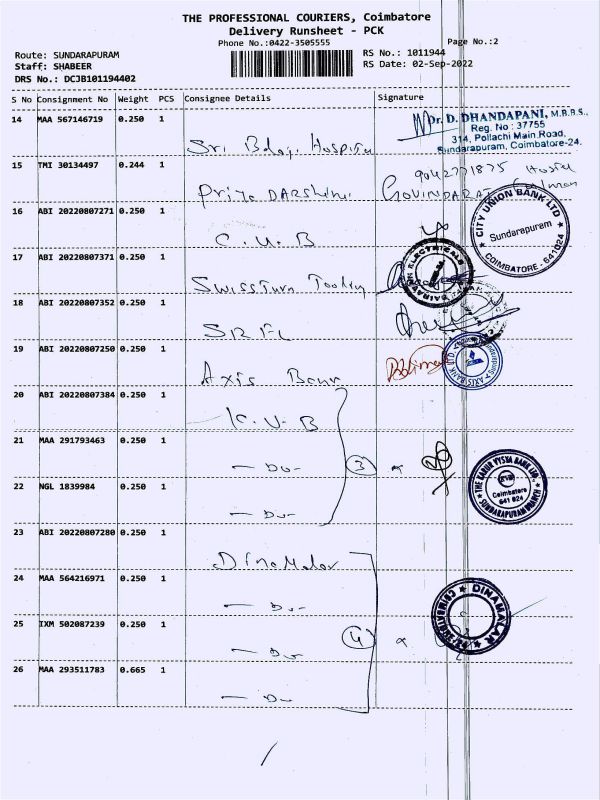 THE PROFESSIONAL COURIERS, Coimbatore
Delivery Runsheet - PCK
Phone No.:0422-3505555
Page No.:2
Route: SUNDARAPURAM
Staff: SHABEER
DRS No.: DCJB101194402
RS No.: 1011944
RS Date: 02-Sep-2022
S No Consignment No Weight PCS Consignee Details Signature
14 MAA 567146719 0.250 1
Sri Balaji Hospital
Dr. D. DHANDAPANI, M.B.B.S.,
Reg. No : 37755
314, Pollachi Main Road,
Sundarapuram, Coimbatore-24.
15 TMI 30134497 0.244 1
Priya DARShini GOVINDARAJ
16 ABI 20220807271 0.250 1
C. U. B
CITY UNION BANK LTD
Sundarapuram
COIMBATORE - 641024
17 ABI 20220807371 0.250 1
Swissturn Tooling
ELECTRICALS
18 ABI 20220807352 0.250 1
19 ABI 20220807250 0.250 1
Axis Bank
AXIS BANK LTD
20 ABI 20220807384 0.250 1
K. V. B
21 MAA 291793463 0.250 1
— Do — 3
THE KARUR VYSYA BANK LTD.
KVB
Coimbatore
641 024
SUNDARAPURAM BRANCH
22 NGL 1839984 0.250 1
— Do —
23 ABI 20220807280 0.250 1
DinaMalar
24 MAA 564216971 0.250 1
— Do —
DINAMALAR
COIMBATORE
25 IXM 502087239 0.250 1
— Do — 4
26 MAA 293511783 0.665 1
— Do —